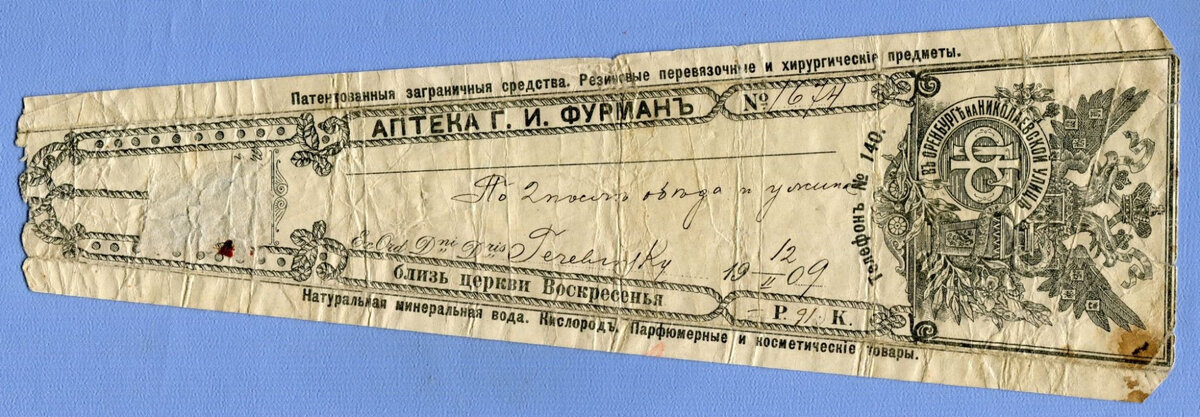 Патентованныя заграничныя средства. Резиновые перевязочные и хирургическіе предметы.
АПТЕКА Г. И. ФУРМАНЪ
№ 1674
По 2 после обеда и ужина
Ex Ord. Dni Dris
19 12/II 09
близь церкви Воскресенья
– Р. 91 К.
Натуральная минеральная вода. Кислородъ. Парфюмерные и косметическіе товары.
Телефонъ № 140.
ВЪ ОРЕНБУРГѢ НА НИКОЛАЕВСКОЙ УЛИЦѢ